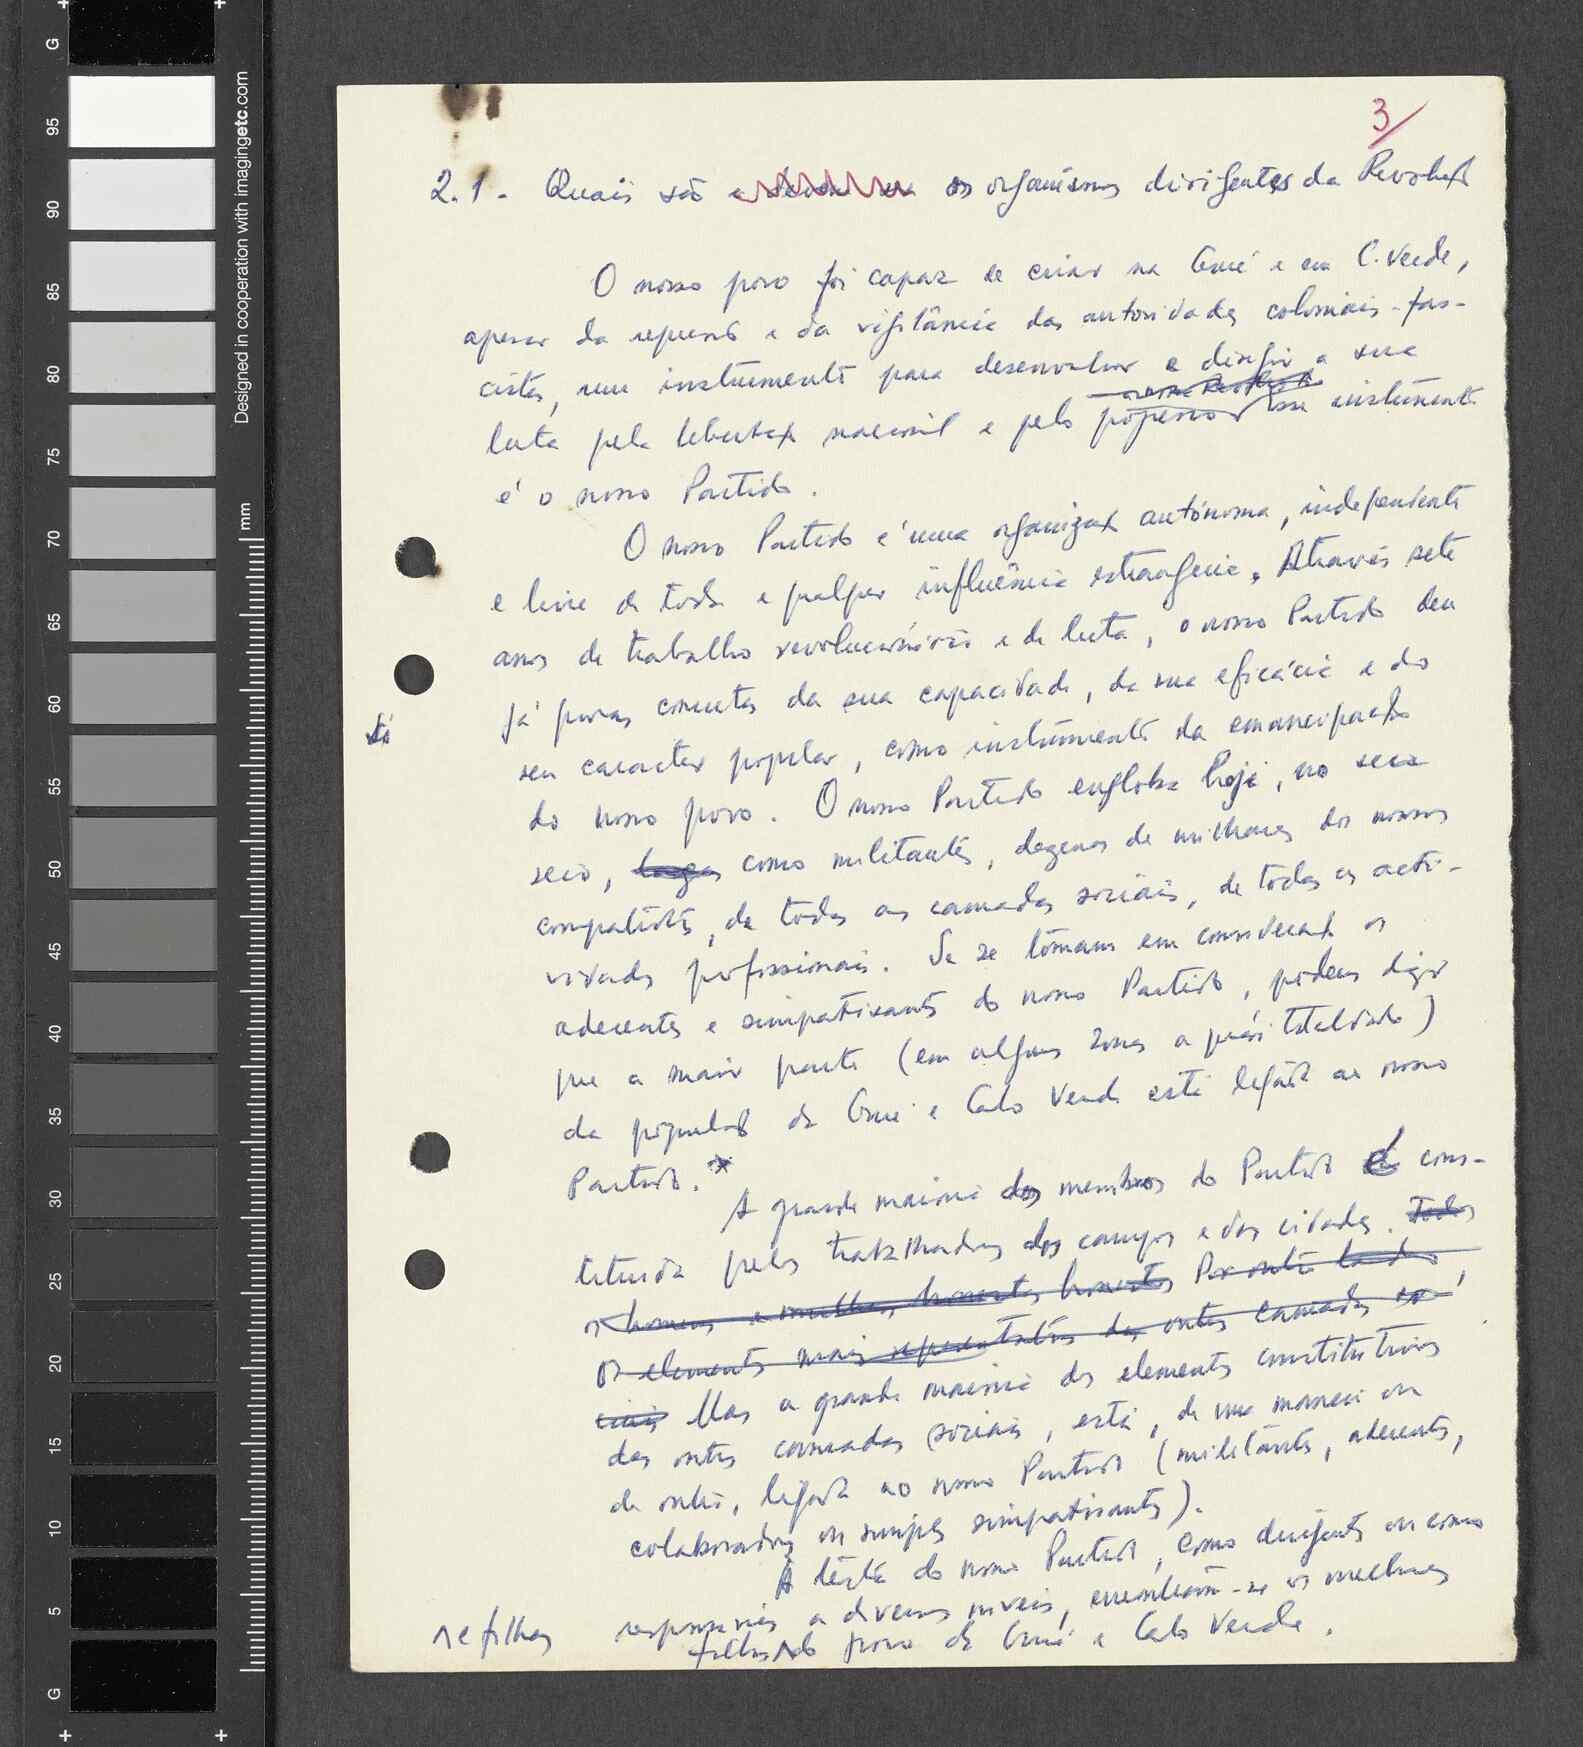 3/
2.1. Quais são os organismos dirigentes da Revoluç
O nosso povo foi capaz de criar na Guiné e em C. Verde,
apesar da repressão e da vigilância das autoridades coloniais-fas-
cistas, um instrumento para desenvolver e dirigir a sua
luta pela libertaç nacional e pelo progresso. Esse instrumento
é o nosso Partido.
O nosso Partido é uma organizaç autónoma, independente
e livre de toda e qalqer influência estrangeira. Através sete
anos de trabalho revolucionário e de luta, o nosso Partido deu
já provas concretas da sua capacidade, da sua eficácia e do
seu caracter popular, como instrumento da emancipação
do nosso povo. O nosso Partido engloba hoje, no seu
seio, como militantes, dezenas de milhares dos nossos
compatriotas, de todas as camadas sociais, de todas as acti-
vidades profissionais. Se se tomam em consideraç os
aderentes e simpatisantes do nosso Partido, podemos dizer
que a maior parte (em algumas zonas a quási totalidade)
da população da Guiné e Cabo Verde está ligada ao nosso
Partido.*
A grande maioria dos membros do Partido é cons-
tituída pelos trabalhadores dos campos e das cidades. Todos
os homens e mulheres honestos Por outro lado,
os elementos mais representativos das outras camadas so-
ciais Mas a grande maioria dos elementos constitutivos
das outras camadas sociais, está, de uma maneira ou
de outra, ligada ao nosso Partido (militantes, aderentes,
colaboradores ou simples simpatisantes).
À testa do nosso Partido, como dirigentes ou como
responsáveis a diversos níveis, encontram-se os melhores
e filhas
filhos do povo da Guiné e Cabo Verde.
Designed in cooperation with imagingetc.com
mm
G
95
90
85
80
75
70
65
60
55
50
45
40
35
30
25
20
15
10
5
G